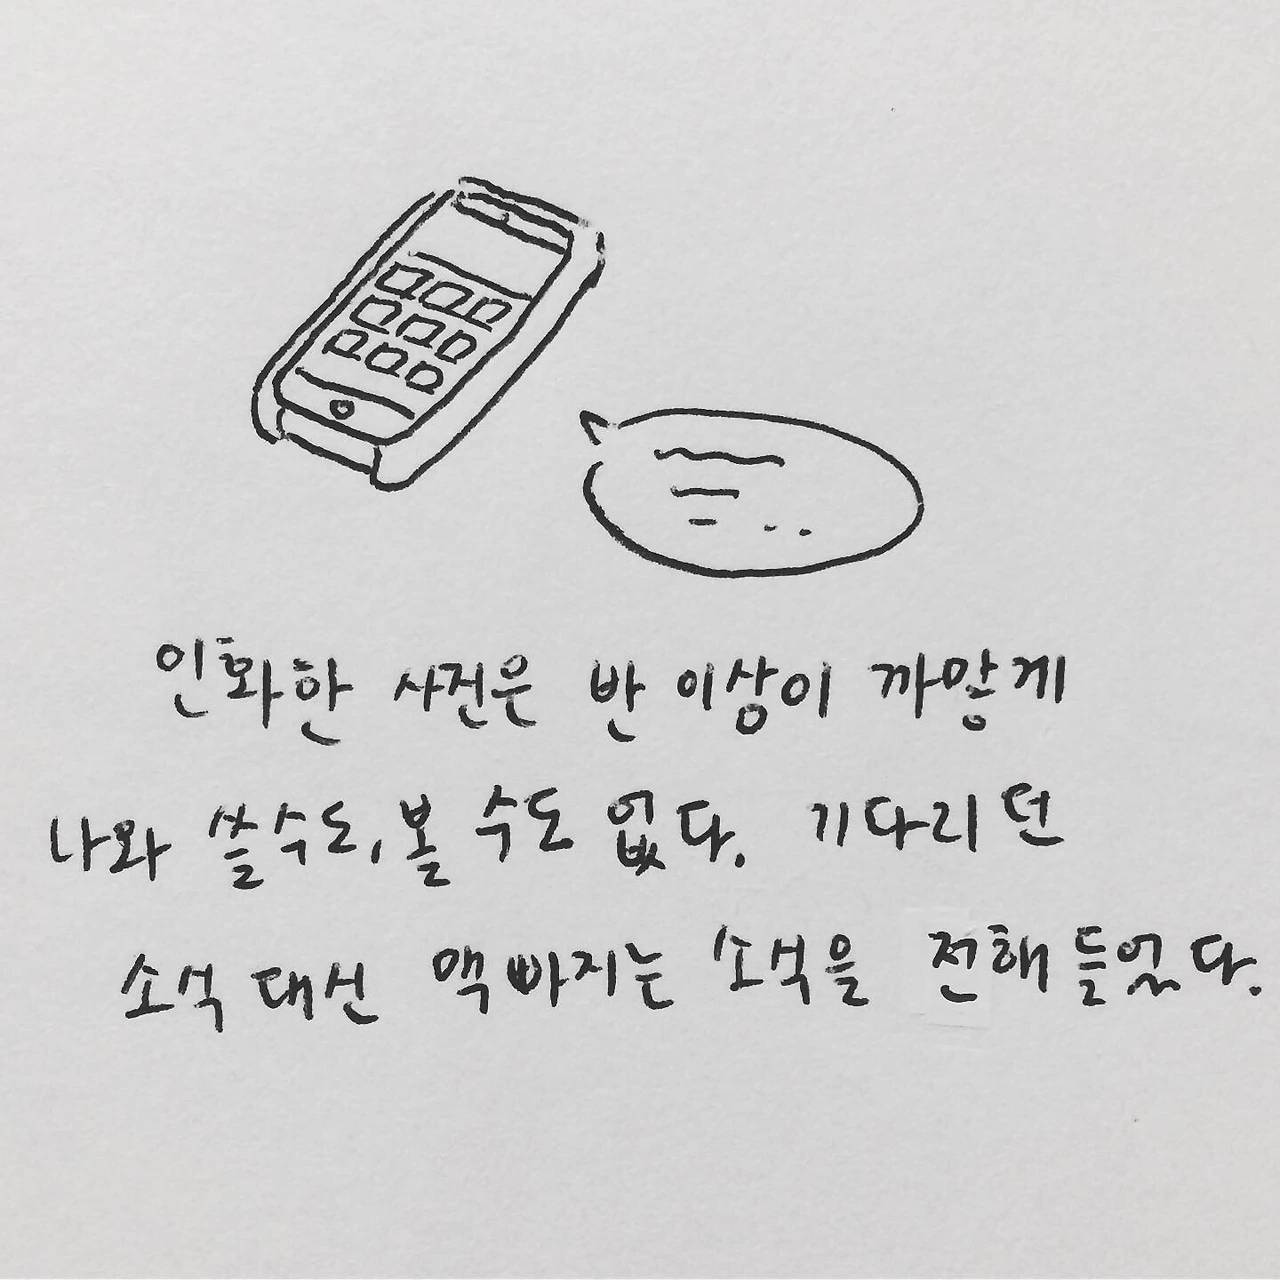 인화한 사진은 반 이상이 까맣게
나와 쓸수도, 볼 수도 없다. 기다리던
소식 대신 맥빠지는 소식을 전해 들었다.